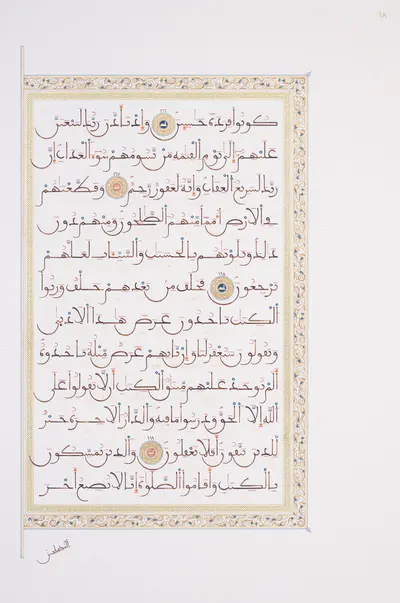 ٦٨
كونوا قردة خسين ١٦٦ وإذ تأذن ربك ليبعثن
عليهم إلى يوم القيمة من يسومهم سوء العذاب إن
ربك لسريع العقاب وإنه لغفور رحيم ١٦٧ وقطعنهم
في الارض أمما منهم الصلحون ومنهم دون
ذلك وبلونهم بالحسنت والسيئات لعلهم
يرجعون ١٦٨ فخلف من بعدهم خلف ورثوا
الكتب ياخذون عرض هذا الادنى
ويقولون سيغفر لنا وإن ياتهم عرض مثله ياخذوه
ألم يوخذ عليهم ميثق الكتب أن لا يقولوا على
الله إلا الحق ودرسوا ما فيه والدار الاخرة خير
للذين يتقون أفلا تعقلون ١٦٩ والذين يمسكون
بالكتب وأقاموا الصلوة إنا لا نضيع أجر
المصلحين